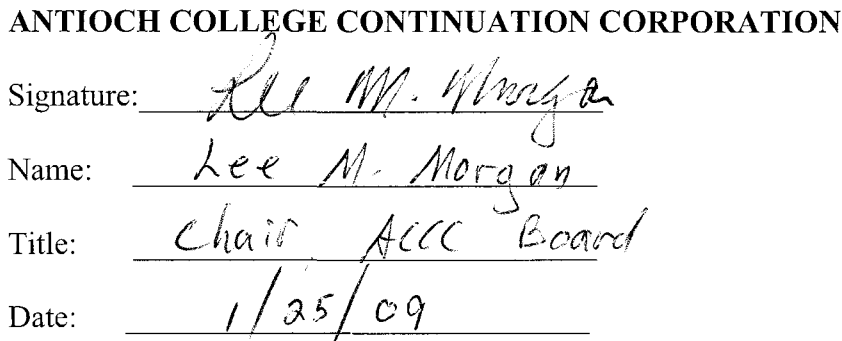 ANTIOCH COLLEGE CONTINUATION CORPORATION
Signature: Lee M. Morgan
Name: Lee M. Morgan
Title: Chair ACCC Board
Date: 1/25/09